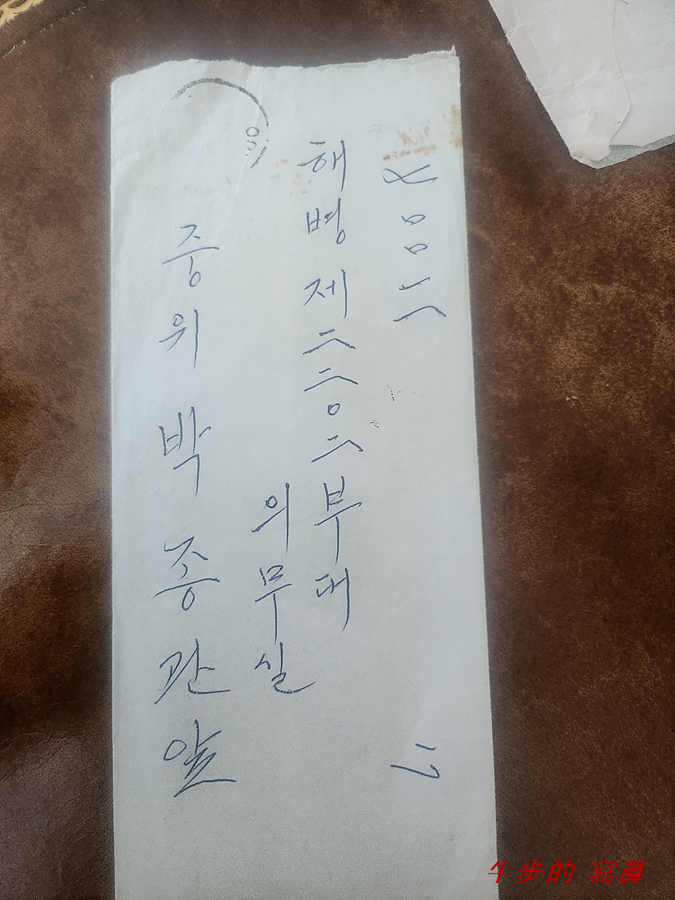 해병제二二〇二부대
의무실
중위 박종관 앞
牛步的 寫眞